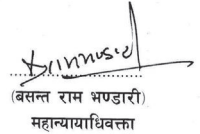 (बसन्त राम भण्डारी)
महान्यायाधिवक्ता